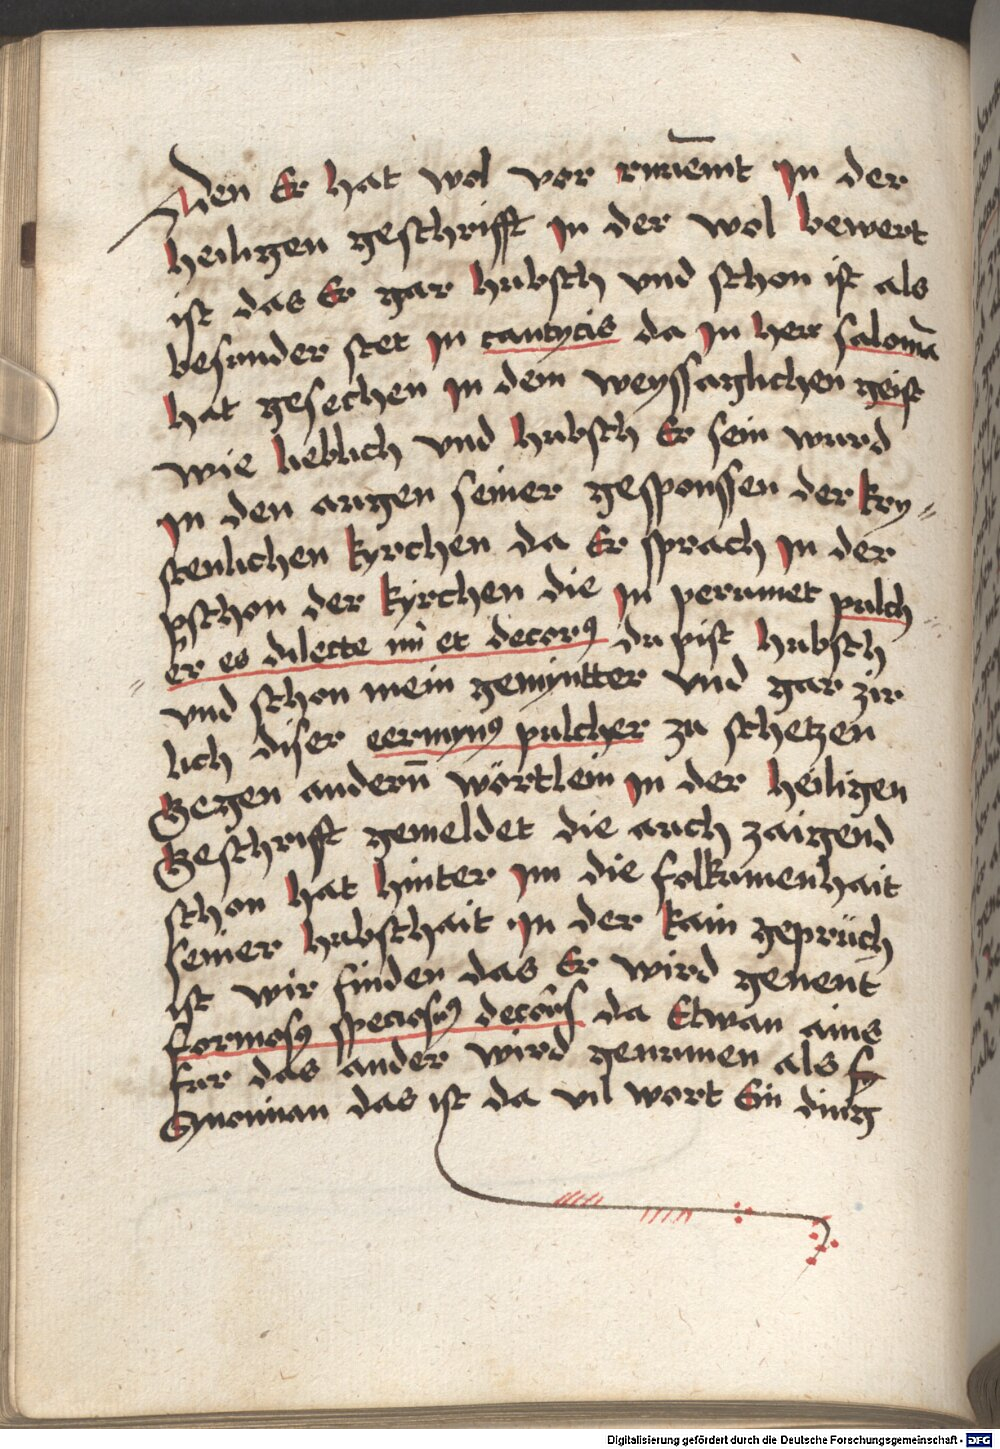 Wen Er hat wol vor rumemt In der
heiligen geschrifft In der wol bewert
ist das Er gar hubsch vnd schon ist als
besunder stet In cantycis da In herr salomon
hat gesechen In dem weyssaglichen geist
wie lieblich vnd hubsch Er sein wurd
In den augen seiner gesponssen der kry„
stenlichen kyrchen da Er sprach In der
pschon der kyrchen die In perumet pulch
er es dilecte mi et decorꝰ du pist hubsch
vnd schon mein gemyntter vnd gar zir
lich diser termynꝰ pulcher zu schetzen
Gegen andern̄ wörtlein In der heiligen
Geschrifft gemeldet die auch zaigend
schon hat hinter Im die folkumenhait
seiner hubschait In der kain geprüch
ist wir finden das Er wird genent
formosꝰ speciosꝰ decorus da Etwan ains
fur das ander wird genumen als
Synoniman das ist da vil wort Ein ding
Digitalisierung gefördert durch die Deutsche Forschungsgemeinschaft - DFG